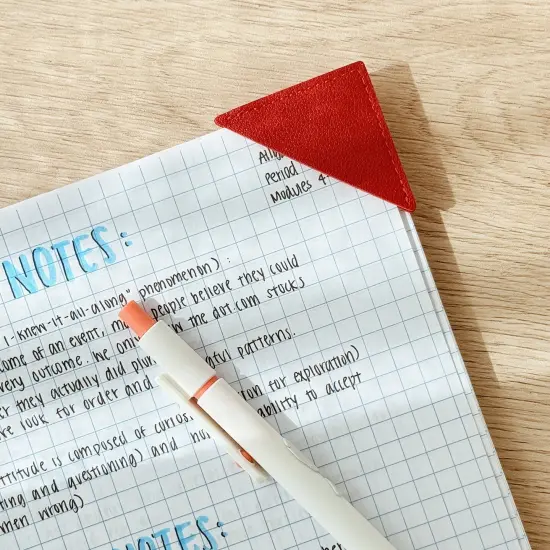 Period
Modules 4-
NOTES:
I-knew-it-all-along" phenomenon):
come of an event, many people believe they could
very outcome. We only the dot.com stocks
r they actually did plun
re look for order and patterns.
ttitude is composed of curios for exploration)
ting and questioning) and hu ability to accept
men wrong)
NOTES: